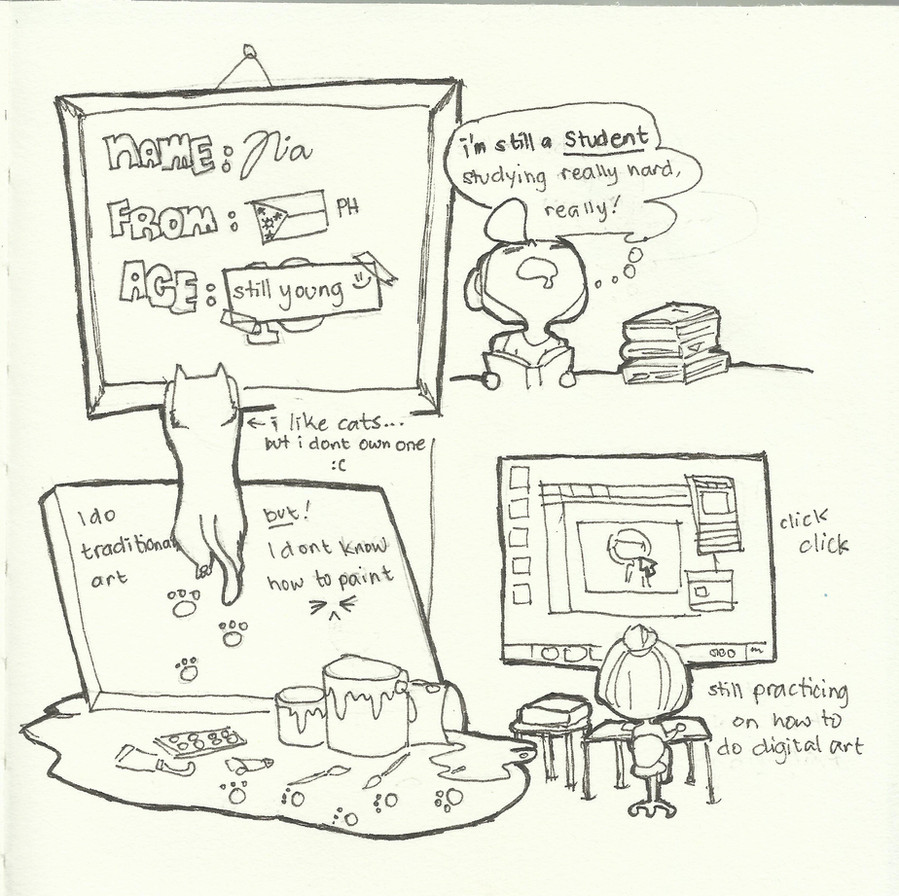 NAME: Nia
FROM: PH
AGE: still young
i'm still a Student
studying really hard,
really!
← i like cats...
but i dont own one
:c
I do
traditional
art
but!
I dont know
how to paint
click
click
still practicing
on how to
do digital art